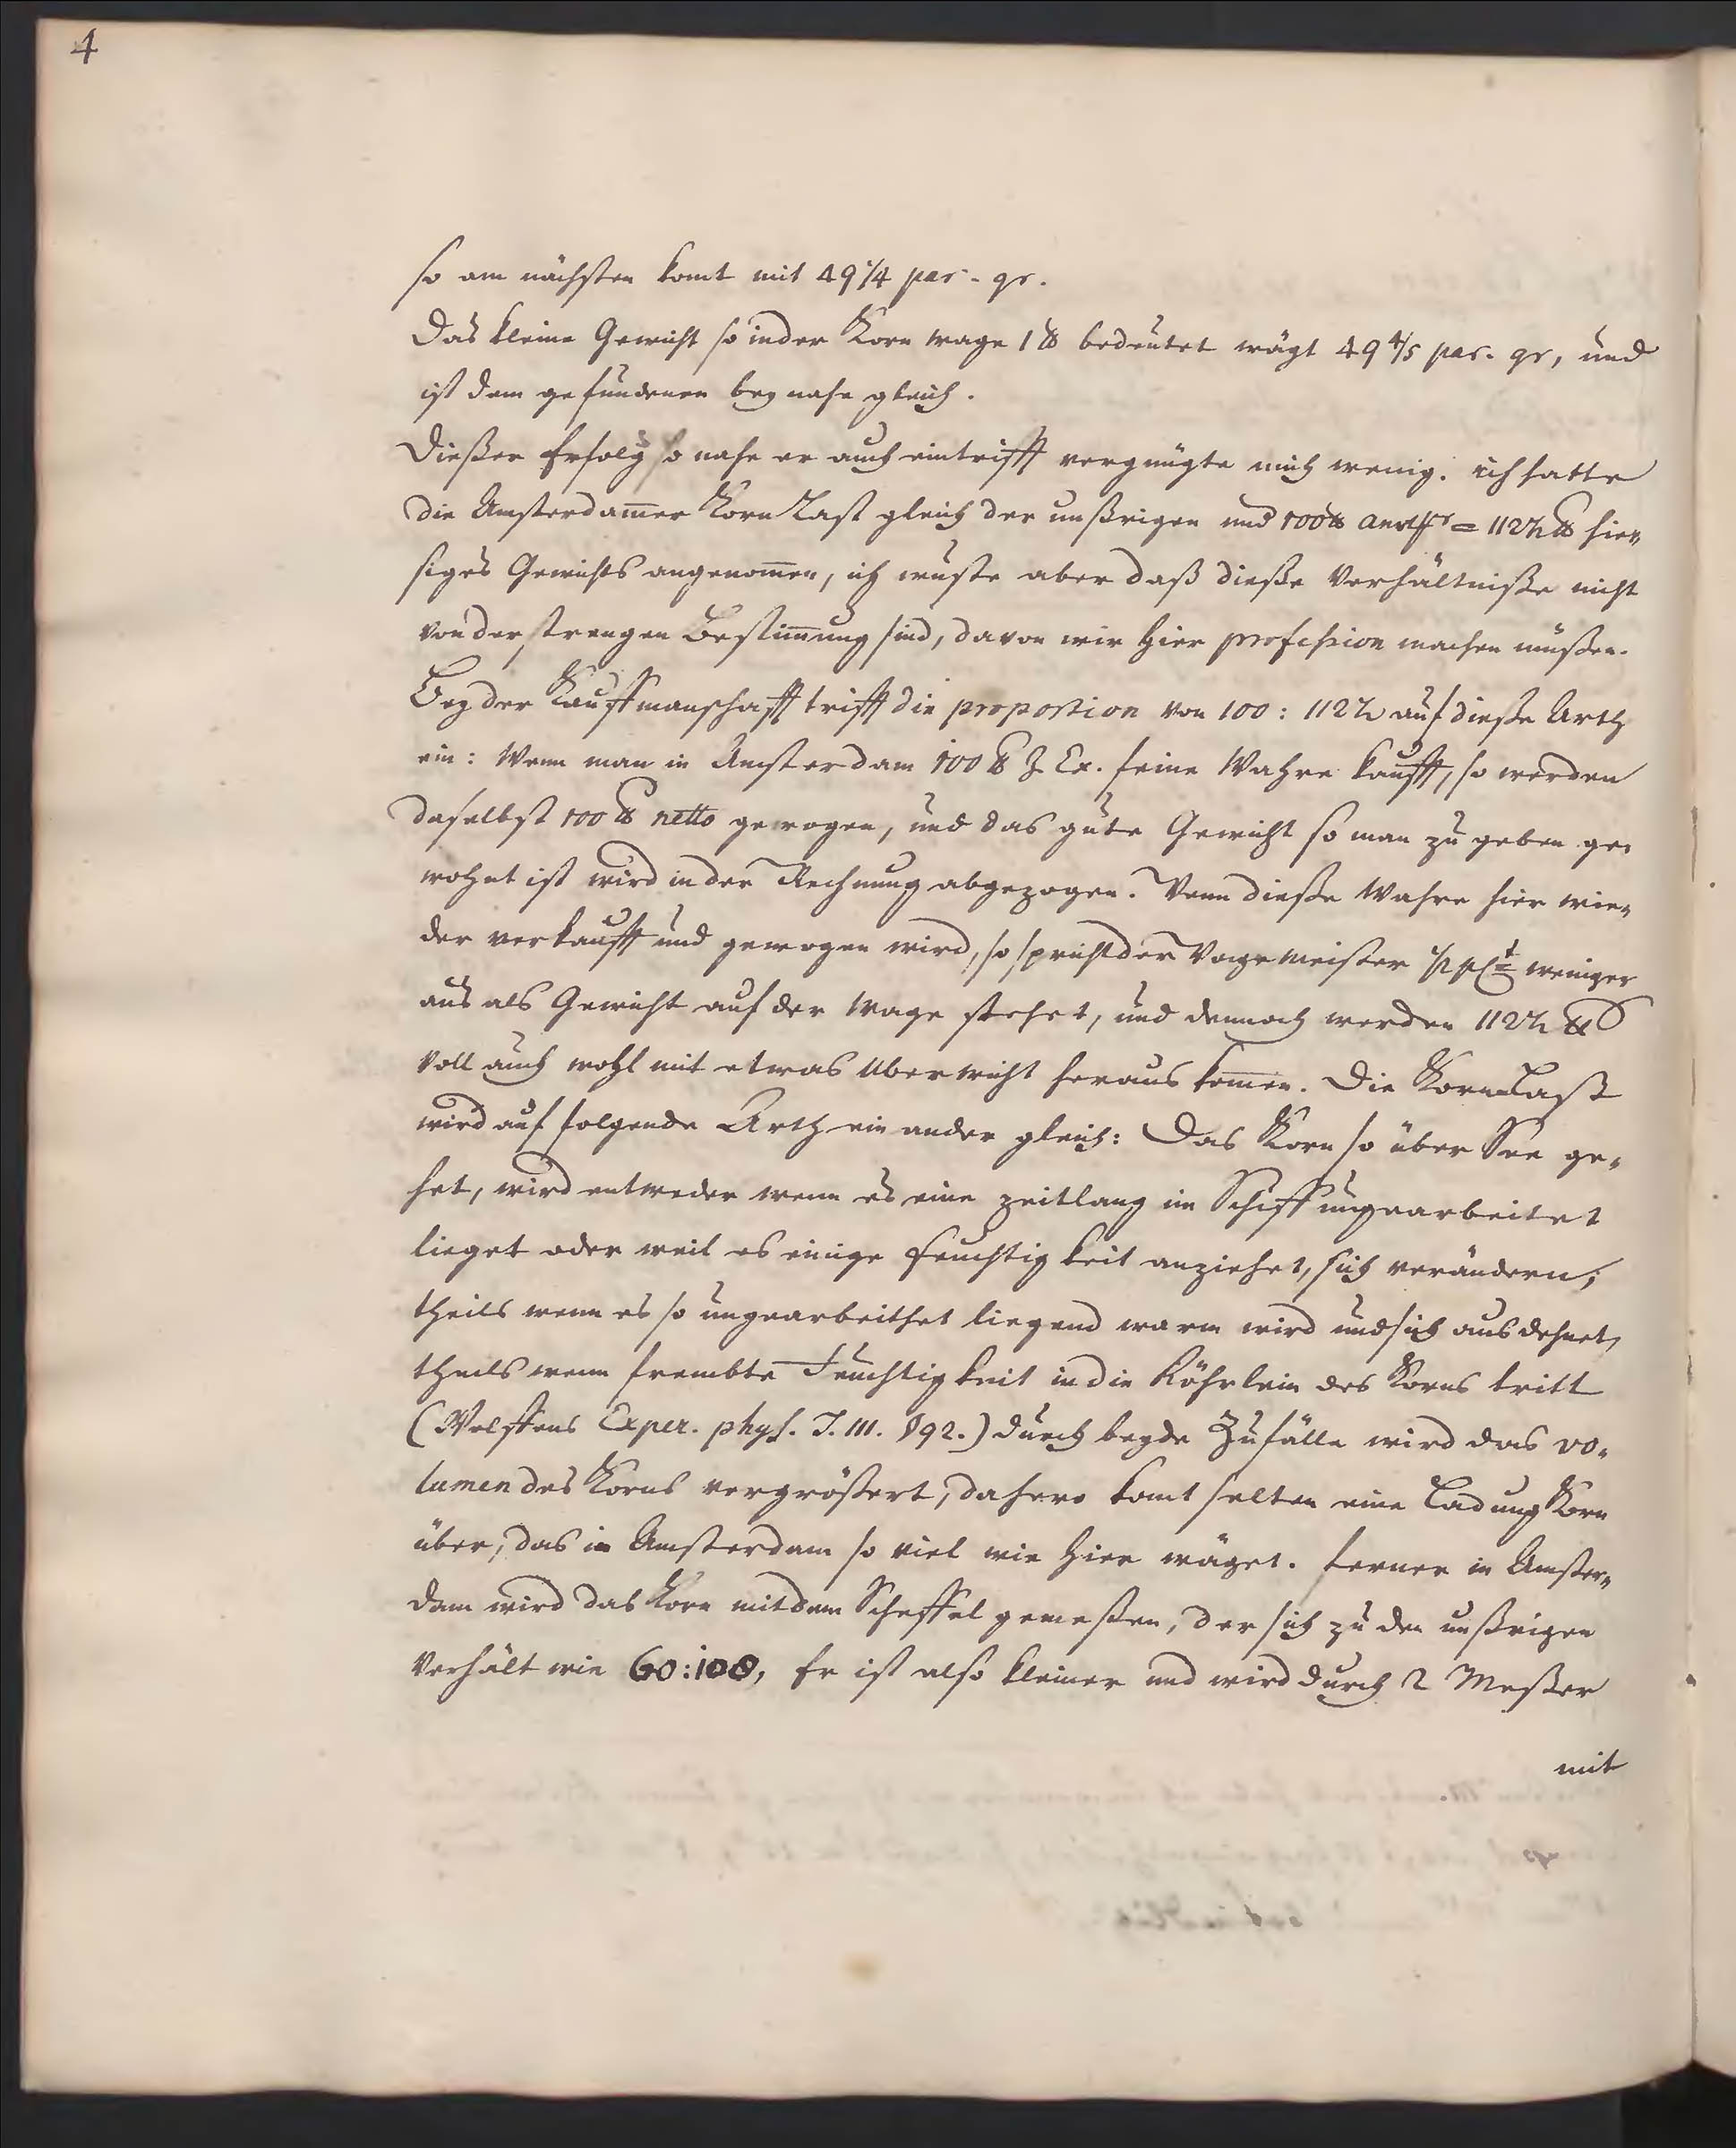 4
so am nächsten komt mit 49¼ par. gr.
Das kleine Gewicht so in der Korn wage 1 ℔ bedeutet wägt 49⅘ par. gr, und
ist dem gefundenen bey nahe gleich.
Dießer Erfolg so nahe er auch eintrifft vergnügte mich wenig. ich hatte
die Amsterdam̄er Korn Last gleich der unßrigen und 100 ℔ = 112½ ℔ hie„
siges Gewichts angenom̄en, ich wuste aber daß dieße Verhältniße nicht
von der strengen Bestim̄ung sind, davon wir hier profession machen müßen.
Bey der Kauffmanschafft trifft die proportion von 100 : 112½ auf dieße Arth
ein: Wenn man in Amsterdam 100 ℔ z. Ex. feine Wahre kaufft, so werden
daselbst 100 ℔ netto gewogen, und das gute Gewicht so man zu geben ge„
wohnt ist wird in der Rechnung abgezogen. Wenn dieße Wahre hier wie„
der verkaufft und gewogen wird, so spricht der Wagemeister ½ pCt weniger
aus als Gewicht auf der Wage stehet, und dennoch werden 112½ ℔
voll auch wohl mit etwas Uberwicht heraus kom̄en. Die Korn Last
wird auf folgende Arth ein ander gleich: Das Korn so über See ge„
het, wird entweder wenn es eine zeitlang im Schiff ungearbeitet
lieget oder weil es einige Feuchtigkeit anziehet, sich verändern;
theils wenn es so ungearbeithet liegend warm wird und sich ausdehnet,
theils wenn frembte Feuchtigkeit in die Röhrlein des Korns tritt
(Wolffens Exper. phys. T. III. §92.) durch beyde Zufälle wird das vo„
lumen des Korns vergrößert, dahero komt selten eine Ladung Korn
über, das in Amsterdam so viel wie hier wäget. ferner in Amster„
dam wird das Korn mit dem Scheffel gemeßen, der sich zu den unßrigen
verhält wie 60:108, Er ist also kleiner und wird durch 2 Meßer
mit